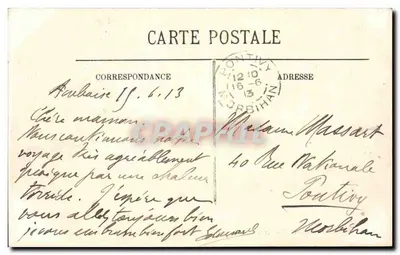 CARTE POSTALE
CORRESPONDANCE
ADRESSE
PONTIVY
12 10
16-6
13
MORBIHAN
Roubaix 15.6.13
Chère maman
Nous continuons notre
voyage très agréablement
quoique par une chaleur
torride. J'espère que
vous allez toujours bien
je vous embrasse bien fort
Madame Massart
40 Rue Nationale
Pontivy
Morbihan